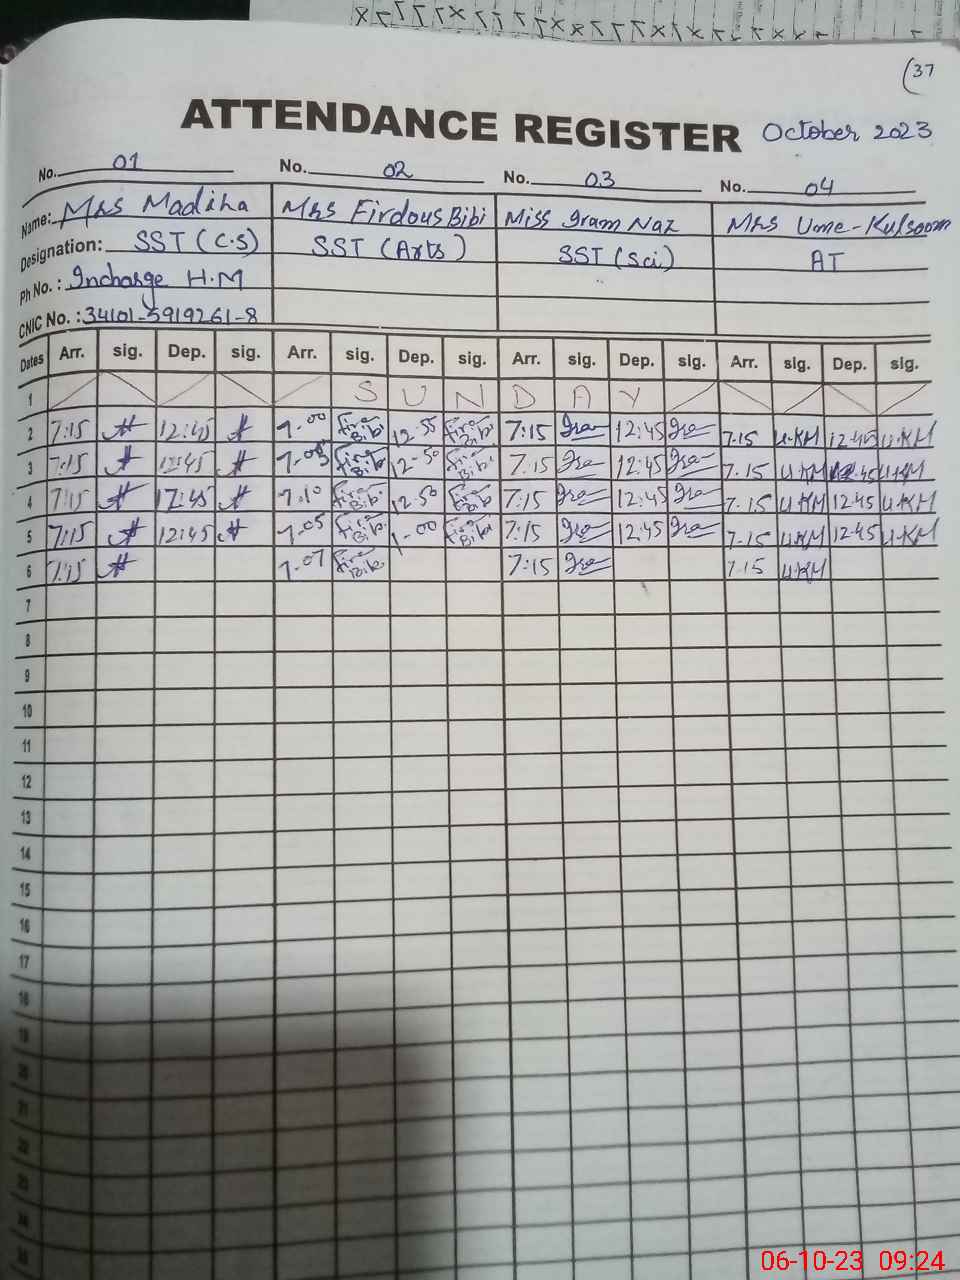 (37
ATTENDANCE REGISTER October 2023
No. 01 No. 02 No. 03 No. 04
Name: Mrs Madiha Mrs Firdous Bibi Miss Iram Naz Mrs Ume-Kulsoom
Designation: SST (C.S) SST (Arts) SST (Sci) AT
Ph No.: Incharge H.M
CNIC No.: 34101-5919261-8
Dates Arr. sig. Dep. sig. Arr. sig. Dep. sig. Arr. sig. Dep. sig. Arr. sig. Dep. sig.
1 S U N D A Y
2 7:15 12:45 7-00 Fir Bibi 12-55 Fir Bibi 7:15 Ira 12:45 Ira 7.15 U.KM 12.45 U.KM
3 7:15 12:45 7-05 Fir Bibi 12-50 Fir Bibi 7:15 Ira 12:45 Ira 7.15 U.KM 12.45 U.KM
4 7:15 12:45 7-10 Fir Bibi 12-50 Fir Bibi 7:15 Ira 12:45 Ira 7.15 U.KM 12.45 U.KM
5 7:15 12:45 7-05 Fir Bibi 1-00 Fir Bibi 7:15 Ira 12:45 Ira 7.15 U.KM 12.45 U.KM
6 7:15 7-07 Fir Bibi 7:15 Ira 7.15 U.KM
7
8
9
10
11
12
13
14
15
16
17
18
19
20
21
22
23
24
25
06-10-23 09:24